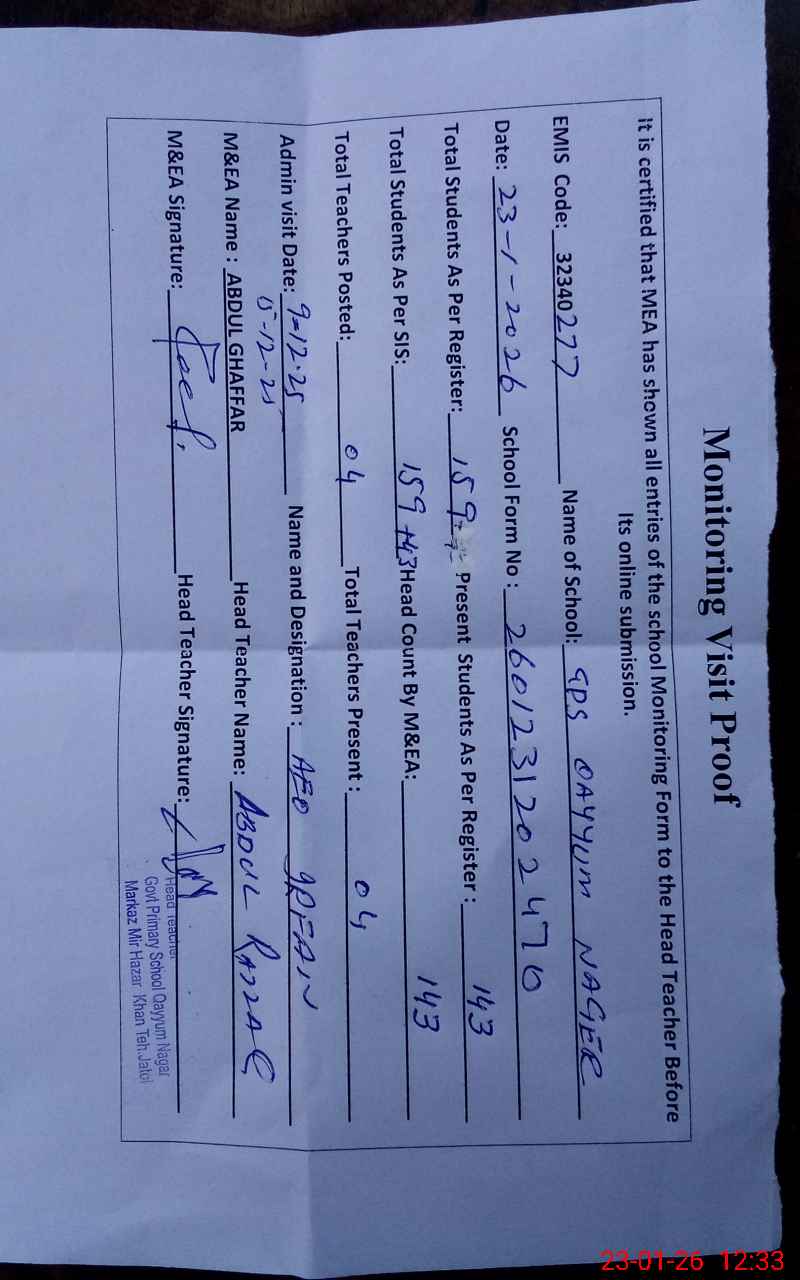 Monitoring Visit Proof
It is certified that MEA has shown all entries of the school Monitoring Form to the Head Teacher Before
Its online submission.
EMIS Code: 32340277 Name of School: GPS QAYYUM NAGER
Date: 23-1-2026 School Form No : 2601231202470
Total Students As Per Register: 159 Present Students As Per Register : 143
Total Students As Per SIS: 159 +43 Head Count By M&EA: 143
Total Teachers Posted: 04 Total Teachers Present : 04
Admin visit Date: 9-12-25 Name and Designation : AEO IRFAN
15-12-25
M&EA Name : ABDUL GHAFFAR Head Teacher Name: ABDUL RAZZAQ
M&EA Signature: Head Teacher Signature:
Head Teacher
Govt Primary School Qayyum Nagar
Markaz Mir Hazar Khan Teh.Jatoi
23-01-26 12:33